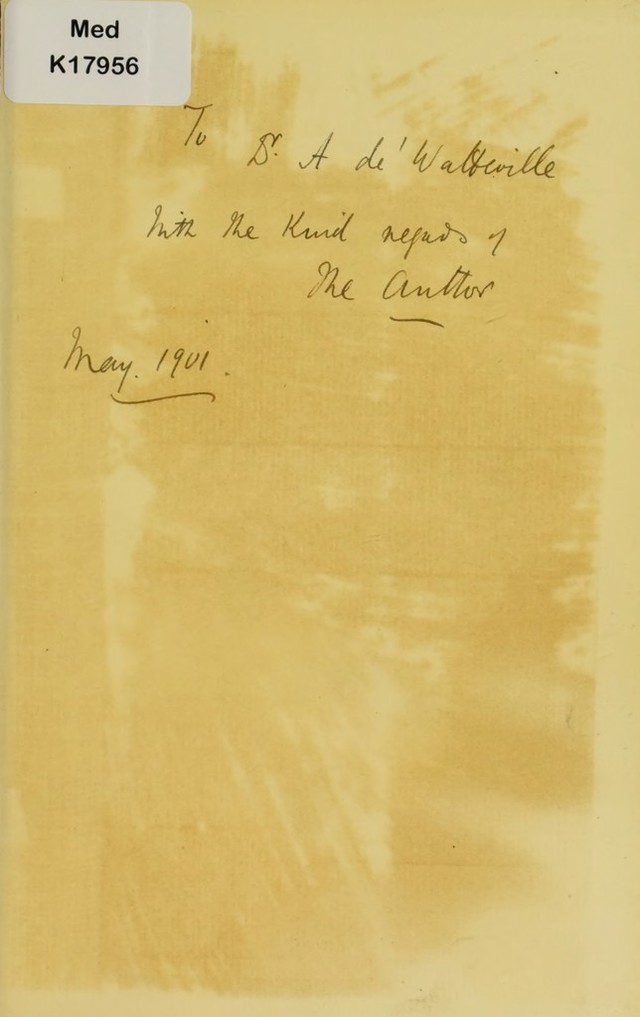 Med
K17956
To
Dr. A de' Watteville
With the Kind regards of
The Author
May. 1901.